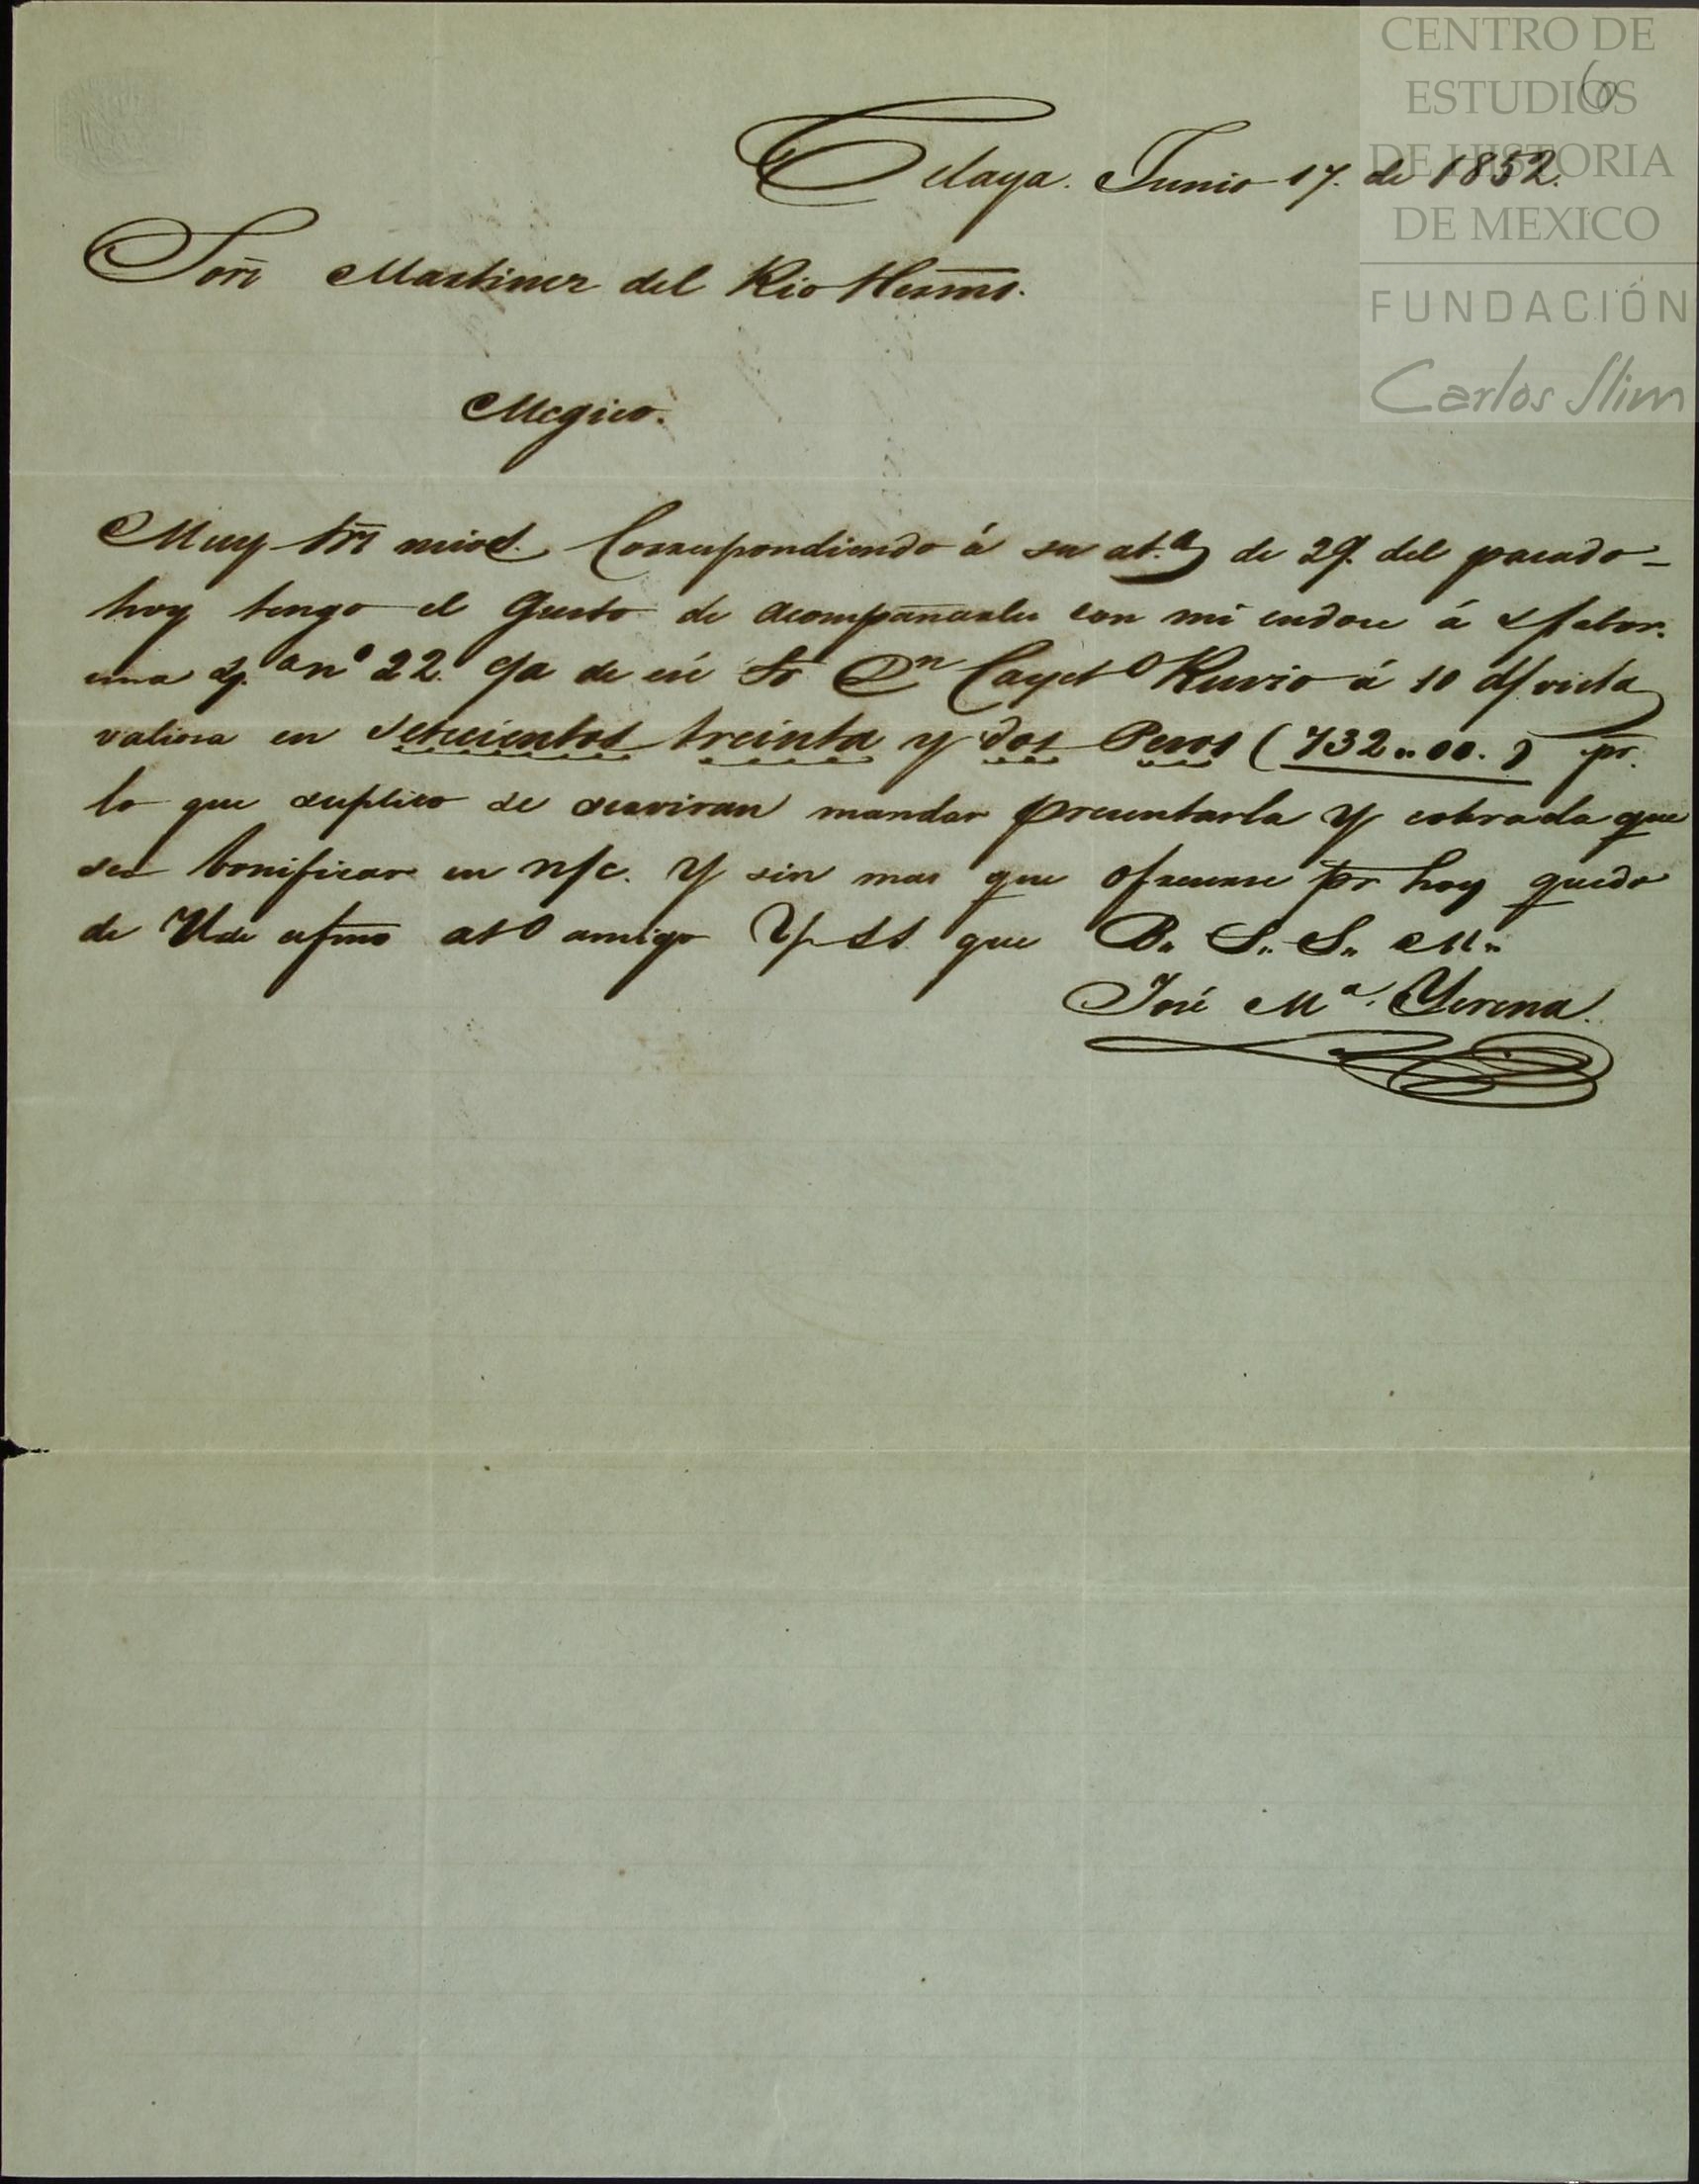 CENTRO DE
ESTUDIOS
DE HISTORIA
DE MEXICO
FUNDACIÓN
Carlos Slim
6
Celaya. Junio 17. de 1852.
Señ Martinez del Rio Herms.
Megico.
Muy Srs mios. Correspondiendo á su at.a de 29. del pasado
hoy tengo el Gusto de acompañarles con mi endose á s/fabor.
una L.a nº 22. c/a de ese Sr Dn Cayet.o Ruvio á 10 d/vista
valiosa en Setecientos treinta y dos Pesos (732,,00.) pr.
lo que suplico se serviran mandar presentarla y cobrada que
sea bonificar en n/c. Y sin mas que ofrecerse pr hoy quedo
de Vds afmo ato amigo Y SS. que B,, S,, S,, M,,
José Ma. Yerena.